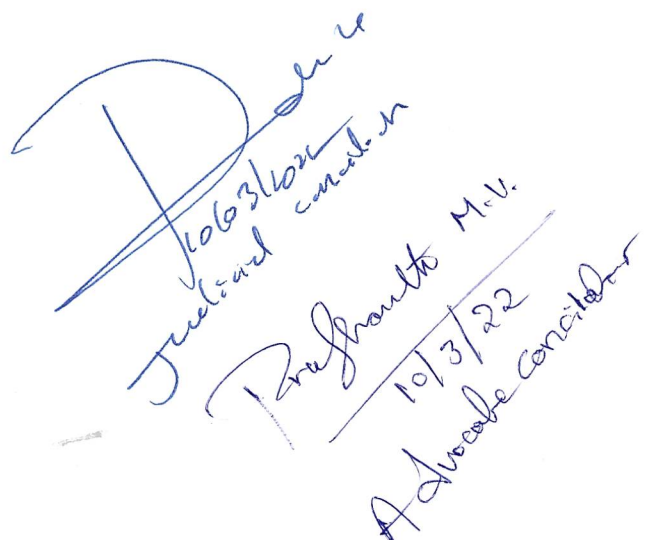 10/03/2022
Judicial conciliator
Prashanth M.V.
10/3/22
Advocate conciliator